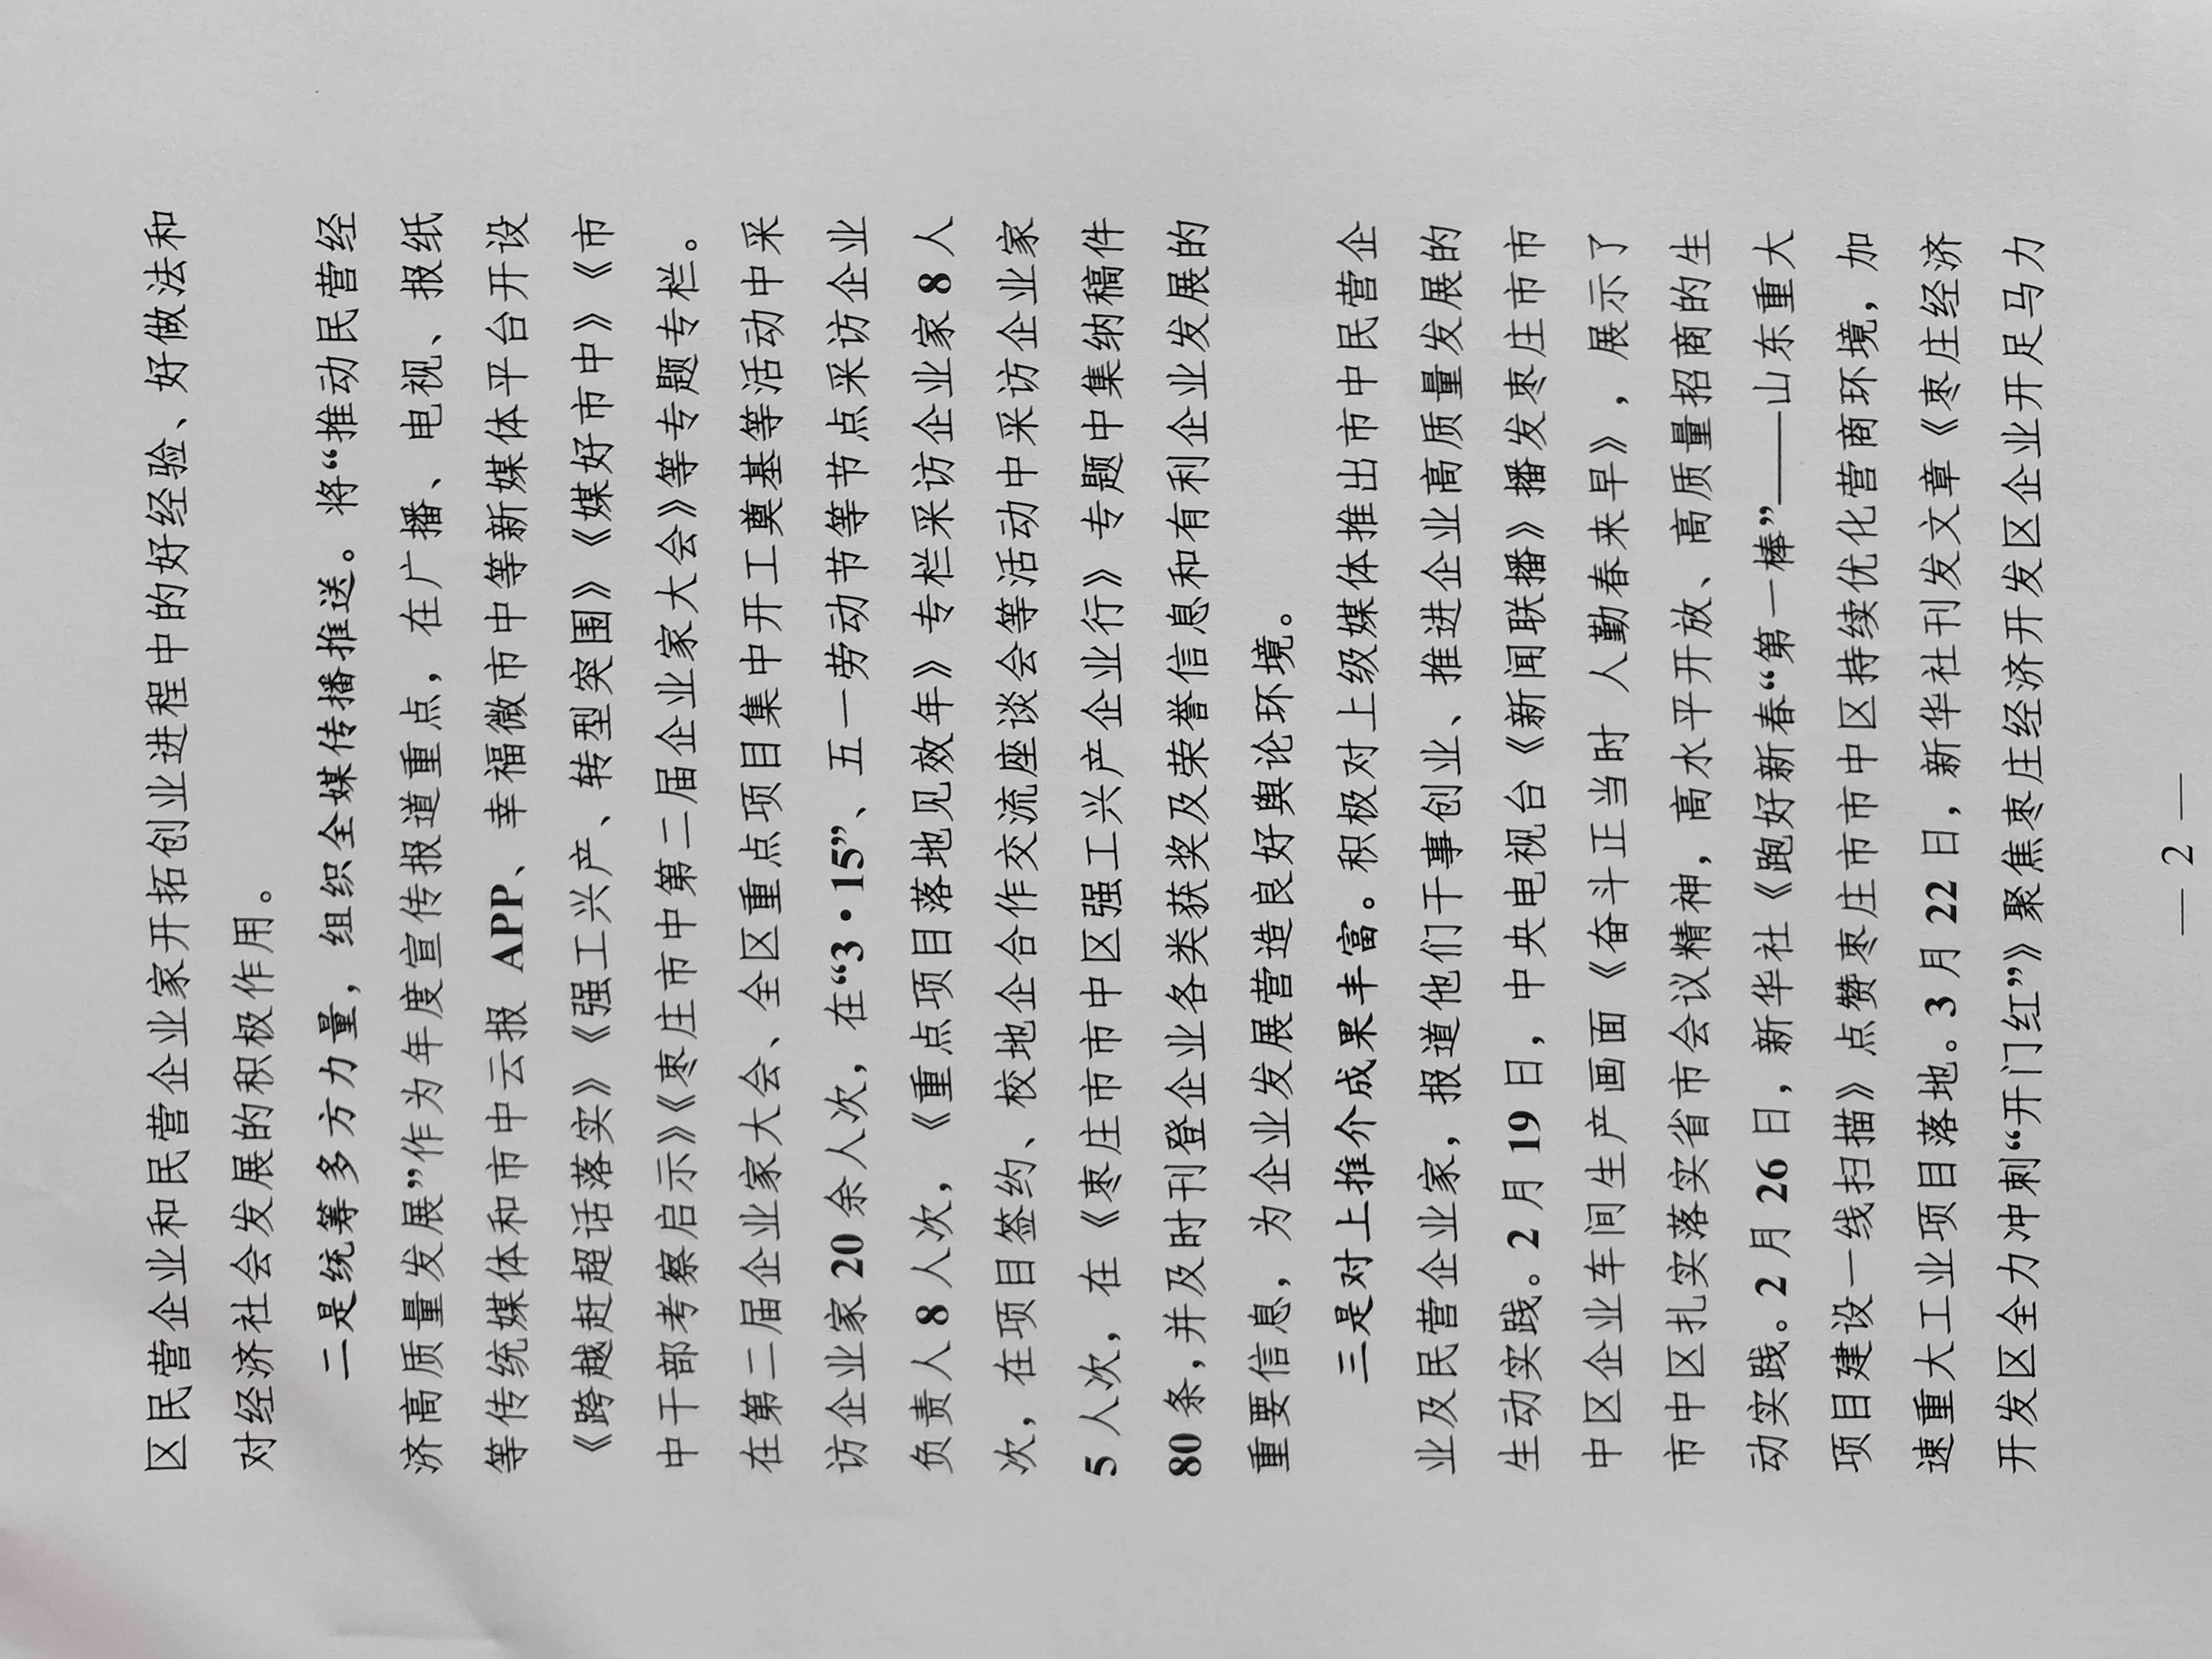 区民营企业和民营企业家开拓创业进程中的好经验、好做法和
对经济社会发展的积极作用。
二是统筹多方力量，组织全媒传播推送。将“推动民营经
济高质量发展”作为年度宣传报道重点，在广播、电视、报纸
等传统媒体和市中云报 APP、幸福微市中等新媒体平台开设
《跨越赶超话落实》《强工兴产、转型突围》《媒好市中》《市
中干部考察启示》《枣庄市中第二届企业家大会》等专题专栏。
在第二届企业家大会、全区重点项目集中开工奠基等活动中采
访企业家 20 余人次，在“3·15”、五一劳动节等节点采访企业
负责人 8 人次，《重点项目落地见效年》专栏采访企业家 8 人
次，在项目签约、校地企合作交流座谈会等活动中采访企业家
5 人次，在《枣庄市市中区强工兴产企业行》专题中集纳稿件
80 条，并及时刊登企业各类获奖及荣誉信息和有利企业发展的
重要信息，为企业发展营造良好舆论环境。
三是对上推介成果丰富。积极对上级媒体推出市中民营企
业及民营企业家，报道他们干事创业、推进企业高质量发展的
生动实践。2 月 19 日，中央电视台《新闻联播》播发枣庄市市
中区企业车间生产画面《奋斗正当时 人勤春来早》，展示了
市中区扎实落实省市会议精神，高水平开放、高质量招商的生
动实践。2 月 26 日，新华社《跑好新春“第一棒”——山东重大
项目建设一线扫描》点赞枣庄市市中区持续优化营商环境，加
速重大工业项目落地。3 月 22 日，新华社刊发文章《枣庄经济
开发区全力冲刺“开门红”》聚焦枣庄经济开发区企业开足马力
— 2 —